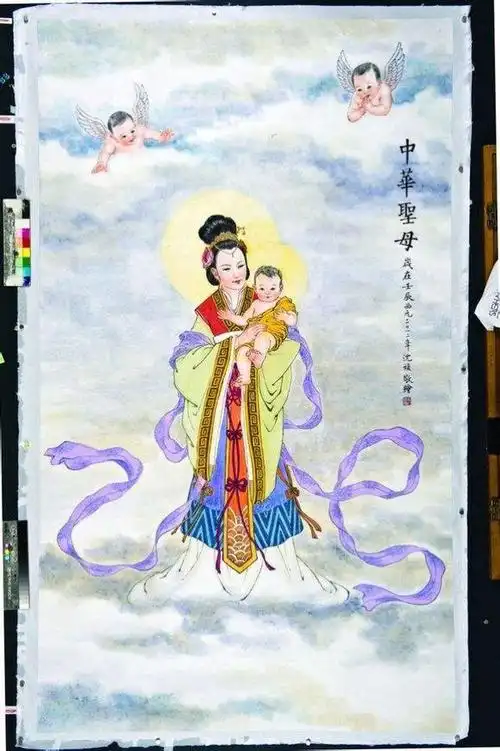 中華聖母
歲在壬辰西元二〇一二年沈禎敬繪